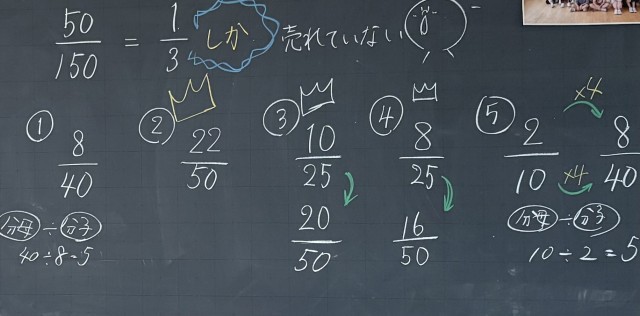 50/150 = 1/3 しか 売れていない
① 8/40
② 22/50
③ 10/25
20/50
④ 8/25
16/50
⑤ 2/10 ×4 ×4 8/40
分母 ÷ 分子
40÷8=5
分母 ÷ 分子
10÷2=5